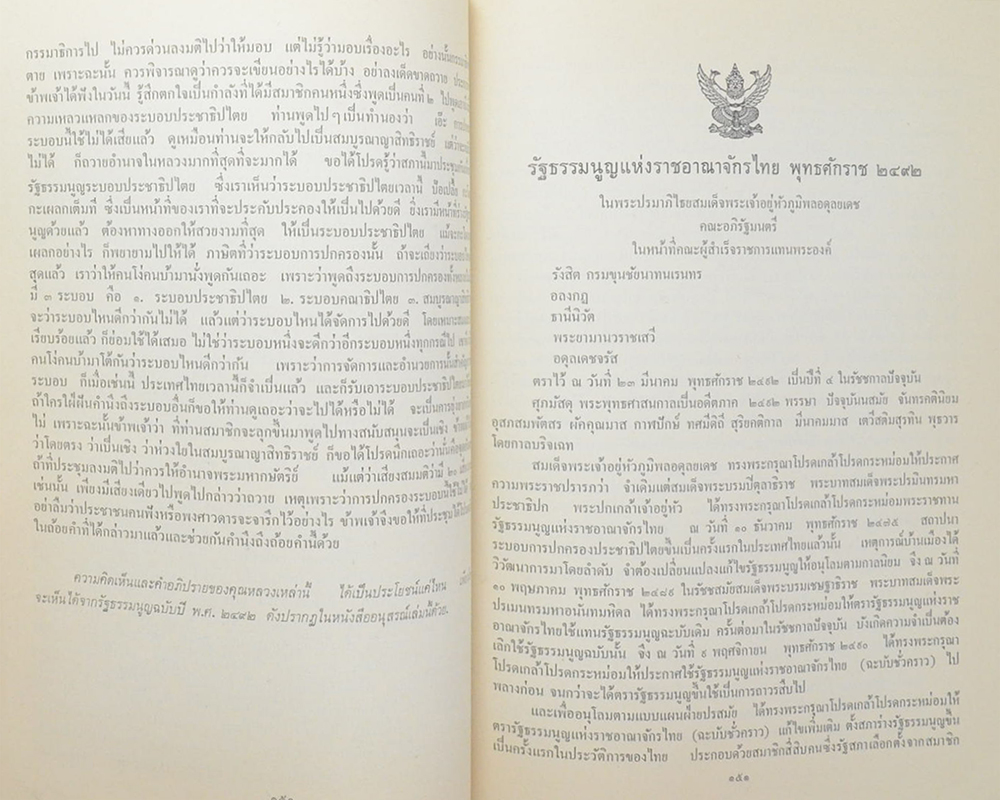 กรรมาธิการไป ไม่ควรด่วนลงมติไปว่าให้มอบ แต่ไม่รู้ว่ามอบเรื่องอะไร
ตาย เพราะฉะนั้น ควรพิจารณาดูว่าควรจะเขียนอย่างไรได้บ้าง อย่าลงเด็ดขาดถวาย
ข้าพเจ้าได้ฟังในวันนี้ รู้สึกตกใจเป็นกำลังที่ได้มีสมาชิกคนหนึ่งซึ่งพูดเป็นคนที่ ๒
ความเหลวแหลกของระบอบประชาธิปไตย ท่านพูดไป ๆ เป็นทำนองว่า เอ๊ะ
ระบอบนี้ใช้ไม่ได้เสียแล้ว ดูเหมือนท่านจะให้กลับไปเป็นสมบูรณาญาสิทธิราชย์
ไม่ได้ ก็ถวายอำนาจในหลวงมากที่สุดที่จะมากได้ ขอได้โปรดรู้ว่าสภานี้มาประชุม
รัฐธรรมนูญระบอบประชาธิปไตย ซึ่งเราเห็นว่าระบอบประชาธิปไตยเวลานี้
กะเผลกเต็มที ซึ่งเป็นหน้าที่ของเราที่จะประคับประคองให้เป็นไปด้วยดี
นูญด้วยแล้ว ต้องหาทางออกให้สวยงามที่สุด ให้เป็นระบอบประชาธิปไตย
เผลกอย่างไร ก็พยายามไปให้ได้ ภาษิตที่ว่าระบอบการปกครองนั้น
สุดแล้ว เราว่าให้คนโง่คนบ้ามานั่งพูดกันเถอะ เพราะว่าพูดถึงระบอบการปกครอง
มี ๓ ระบอบ คือ ๑. ระบอบประชาธิปไตย ๒. ระบอบคณาธิปไตย ๓.
จะว่าระบอบไหนดีกว่ากันไม่ได้ แล้วแต่ว่าระบอบไหนได้จัดการไปด้วยดี
เรียบร้อยแล้ว ก็ย่อมใช้ได้เสมอ ไม่ใช่ว่าระบอบหนึ่งจะดีกว่าอีกระบอบหนึ่งทุกกรณีไป
คนโง่กบบ้ามาโต้กันว่าระบอบไหนดีกว่ากัน เพราะว่าการจัดการและอำนวยการนั้น
ระบอบ ก็เมื่อเช่นนี้ ประเทศไทยเวลานี้ก็จำเป็นแล้ว และก็รับเอาระบอบประชาธิปไตย
ถ้าใครใฝ่ฝันคำนึงถึงระบอบอื่นก็ขอให้ท่านดูเถอะว่าจะไปได้หรือไม่ได้
ไม่ เพราะฉะนั้นข้าพเจ้าว่า ที่ท่านสมาชิกจะลุกขึ้นมาพูดไปทางสนับสนุนจะเป็นเชิง
ว่าโดยตรง ว่าเป็นเชิง ว่าห่วงใยในสมบูรณาญาสิทธิราชย์ ก็ขอได้โปรดนึกเถอะว่า
ถ้าที่ประชุมลงมติไปว่าควรให้อำนาจพระมหากษัตริย์ แม้แต่ว่าเสียงสมมติว่ามี ๒๐
เช่นนั้น เพียงมีเสียงเดียวไปพูดไปกล่าวว่าถวาย เหตุเพราะว่าการปกครองระบอบนี้ใช้ไม่ได้
อย่าลืมว่าประชาชนคนฟังหรือพงศาวดารจะจารึกไว้อย่างไร ข้าพเจ้าจึงขอให้ที่ประชุม
ในถ้อยคำที่ได้กล่าวมาแล้วและช่วยกันคำนึงถึงถ้อยคำนี้ด้วย
ความคิดเห็นและคำอภิปรายของคุณหลวงเหล่านี้ ได้เป็นประโยชน์แค่ไหน
จะเห็นได้จากรัฐธรรมนูญฉบับปี พ.ศ. ๒๔๙๒ ดังปรากฏในหนังสืออนุสรณ์เล่มนี้ด้วย.
รัฐธรรมนูญแห่งราชอาณาจักรไทย พุทธศักราช ๒๔๙๒
ในพระปรมาภิไธยสมเด็จพระเจ้าอยู่หัวภูมิพลอดุลยเดช
คณะอภิรัฐมนตรี
ในหน้าที่คณะผู้สำเร็จราชการแทนพระองค์
รังสิต กรมขุนชัยนาทนเรนทร
อลงกฎ
ธานีนิวัต
พระยามานวราชเสวี
อดุลเดชจรัส
ตราไว้ ณ วันที่ ๒๓ มีนาคม พุทธศักราช ๒๔๙๒ เป็นปีที่ ๔ ในรัชกาลปัจจุบัน
ศุภมัสดุ พระพุทธศาสนกาลเป็นอดีตภาค ๒๔๙๒ พรรษา ปัจจุบันนสมัย จันทรคตินิยม
อุสุภสมพัตสร ผัคคุณมาส กาฬปักษ์ ทศมีดิถี สุริยคติกาล มีนาคมมาส เตวีสติมสุรทิน พุธวาร
โดยกาลบริจเฉท
สมเด็จพระเจ้าอยู่หัวภูมิพลอดุลยเดช ทรงพระกรุณาโปรดเกล้าโปรดกระหม่อมให้ประกาศ
ความพระราชปรารภว่า จำเดิมแต่สมเด็จพระบรมปิตุลาธิราช พระบาทสมเด็จพระปรมินทรมหา
ประชาธิปก พระปกเกล้าเจ้าอยู่หัว ได้ทรงพระกรุณาโปรดเกล้าโปรดกระหม่อมพระราชทาน
รัฐธรรมนูญแห่งราชอาณาจักรไทย ณ วันที่ ๑๐ ธันวาคม พุทธศักราช ๒๔๗๕ สถาปนา
ระบอบการปกครองประชาธิปไตยขึ้นเป็นครั้งแรกในประเทศไทยแล้วนั้น เหตุการณ์บ้านเมืองได้
วิวัฒนาการมาโดยลำดับ จำต้องเปลี่ยนแปลงแก้ไขรัฐธรรมนูญให้อนุโลมตามกาลนิยม จึ่ง ณ วันที่
๑๐ พฤษภาคม พุทธศักราช ๒๔๘๙ ในรัชชสมัยสมเด็จพระบรมเชษฐาธิราช พระบาทสมเด็จพระ
ปรเมนทรมหาอานันทมหิดล ได้ทรงพระกรุณาโปรดเกล้าโปรดกระหม่อมให้ตรารัฐธรรมนูญแห่งราช
อาณาจักรไทยใช้แทนรัฐธรรมนูญฉะบับเดิม ครั้นต่อมาในรัชชกาลปัจจุบัน บังเกิดความจำเป็นต้อง
เลิกใช้รัฐธรรมนูญฉบับนั้น จึ่ง ณ วันที่ ๙ พฤศจิกายน พุทธศักราช ๒๔๙๐ ได้ทรงพระกรุณา
โปรดเกล้าโปรดกระหม่อมให้ประกาศใช้รัฐธรรมนูญแห่งราชอาณาจักรไทย (ฉะบับชั่วคราว) ไป
พลางก่อน จนกว่าจะได้ตรารัฐธรรมนูญขึ้นใช้เป็นการถาวรสืบไป
และเพื่ออนุโลมตามแบบแผนฝ่ายปรสมัย ได้ทรงพระกรุณาโปรดเกล้าโปรดกระหม่อมให้
ตรารัฐธรรมนูญแห่งราชอาณาจักรไทย (ฉะบับชั่วคราว) แก้ไขเพิ่มเติม ตั้งสภาร่างรัฐธรรมนูญขึ้น
เป็นครั้งแรกในประวัติการของไทย ประกอบด้วยสมาชิกสี่สิบคนซึ่งรัฐสภาเลือกตั้งจากสมาชิก
๑๕๑